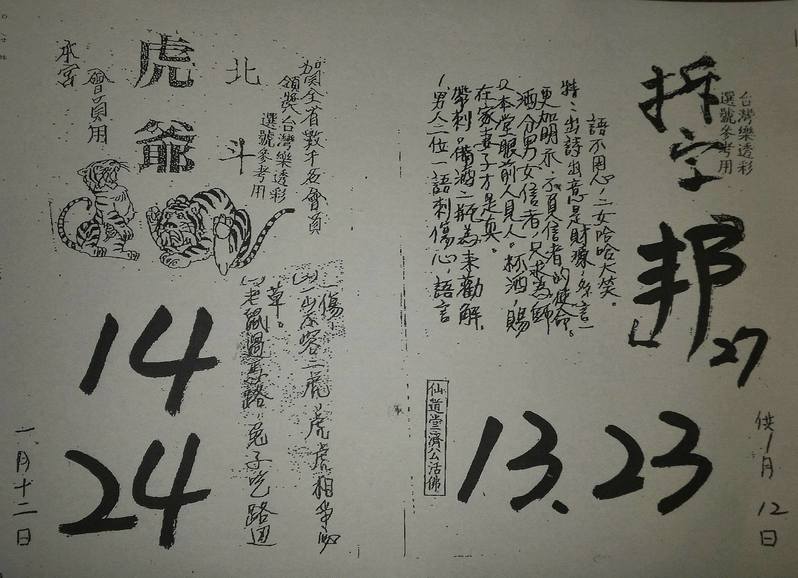 台灣樂透彩
選號參考用
拆字
邦
27
語不用心,二女哈哈大笑。
特:出詩出意是財源,
更加明示,不負信者的使命。
酒分男女信者,只求為師
又本堂眼前人見人。杯酒,賜
在家妻子才是真。
帶刺。備酒二瓶為来勸解,
(男人二位一語刺傷心,語言
仙道堂濟公活佛
13.23
1月12日
賀全省數千名會員
領獎台灣樂透彩
選號參考用
北斗
虎爺
會員用
本宮
一山不容二虎,虎虎相爭必
傷。
老鼠過馬路,兔子吃路邊
草。
14
24
一月十二日